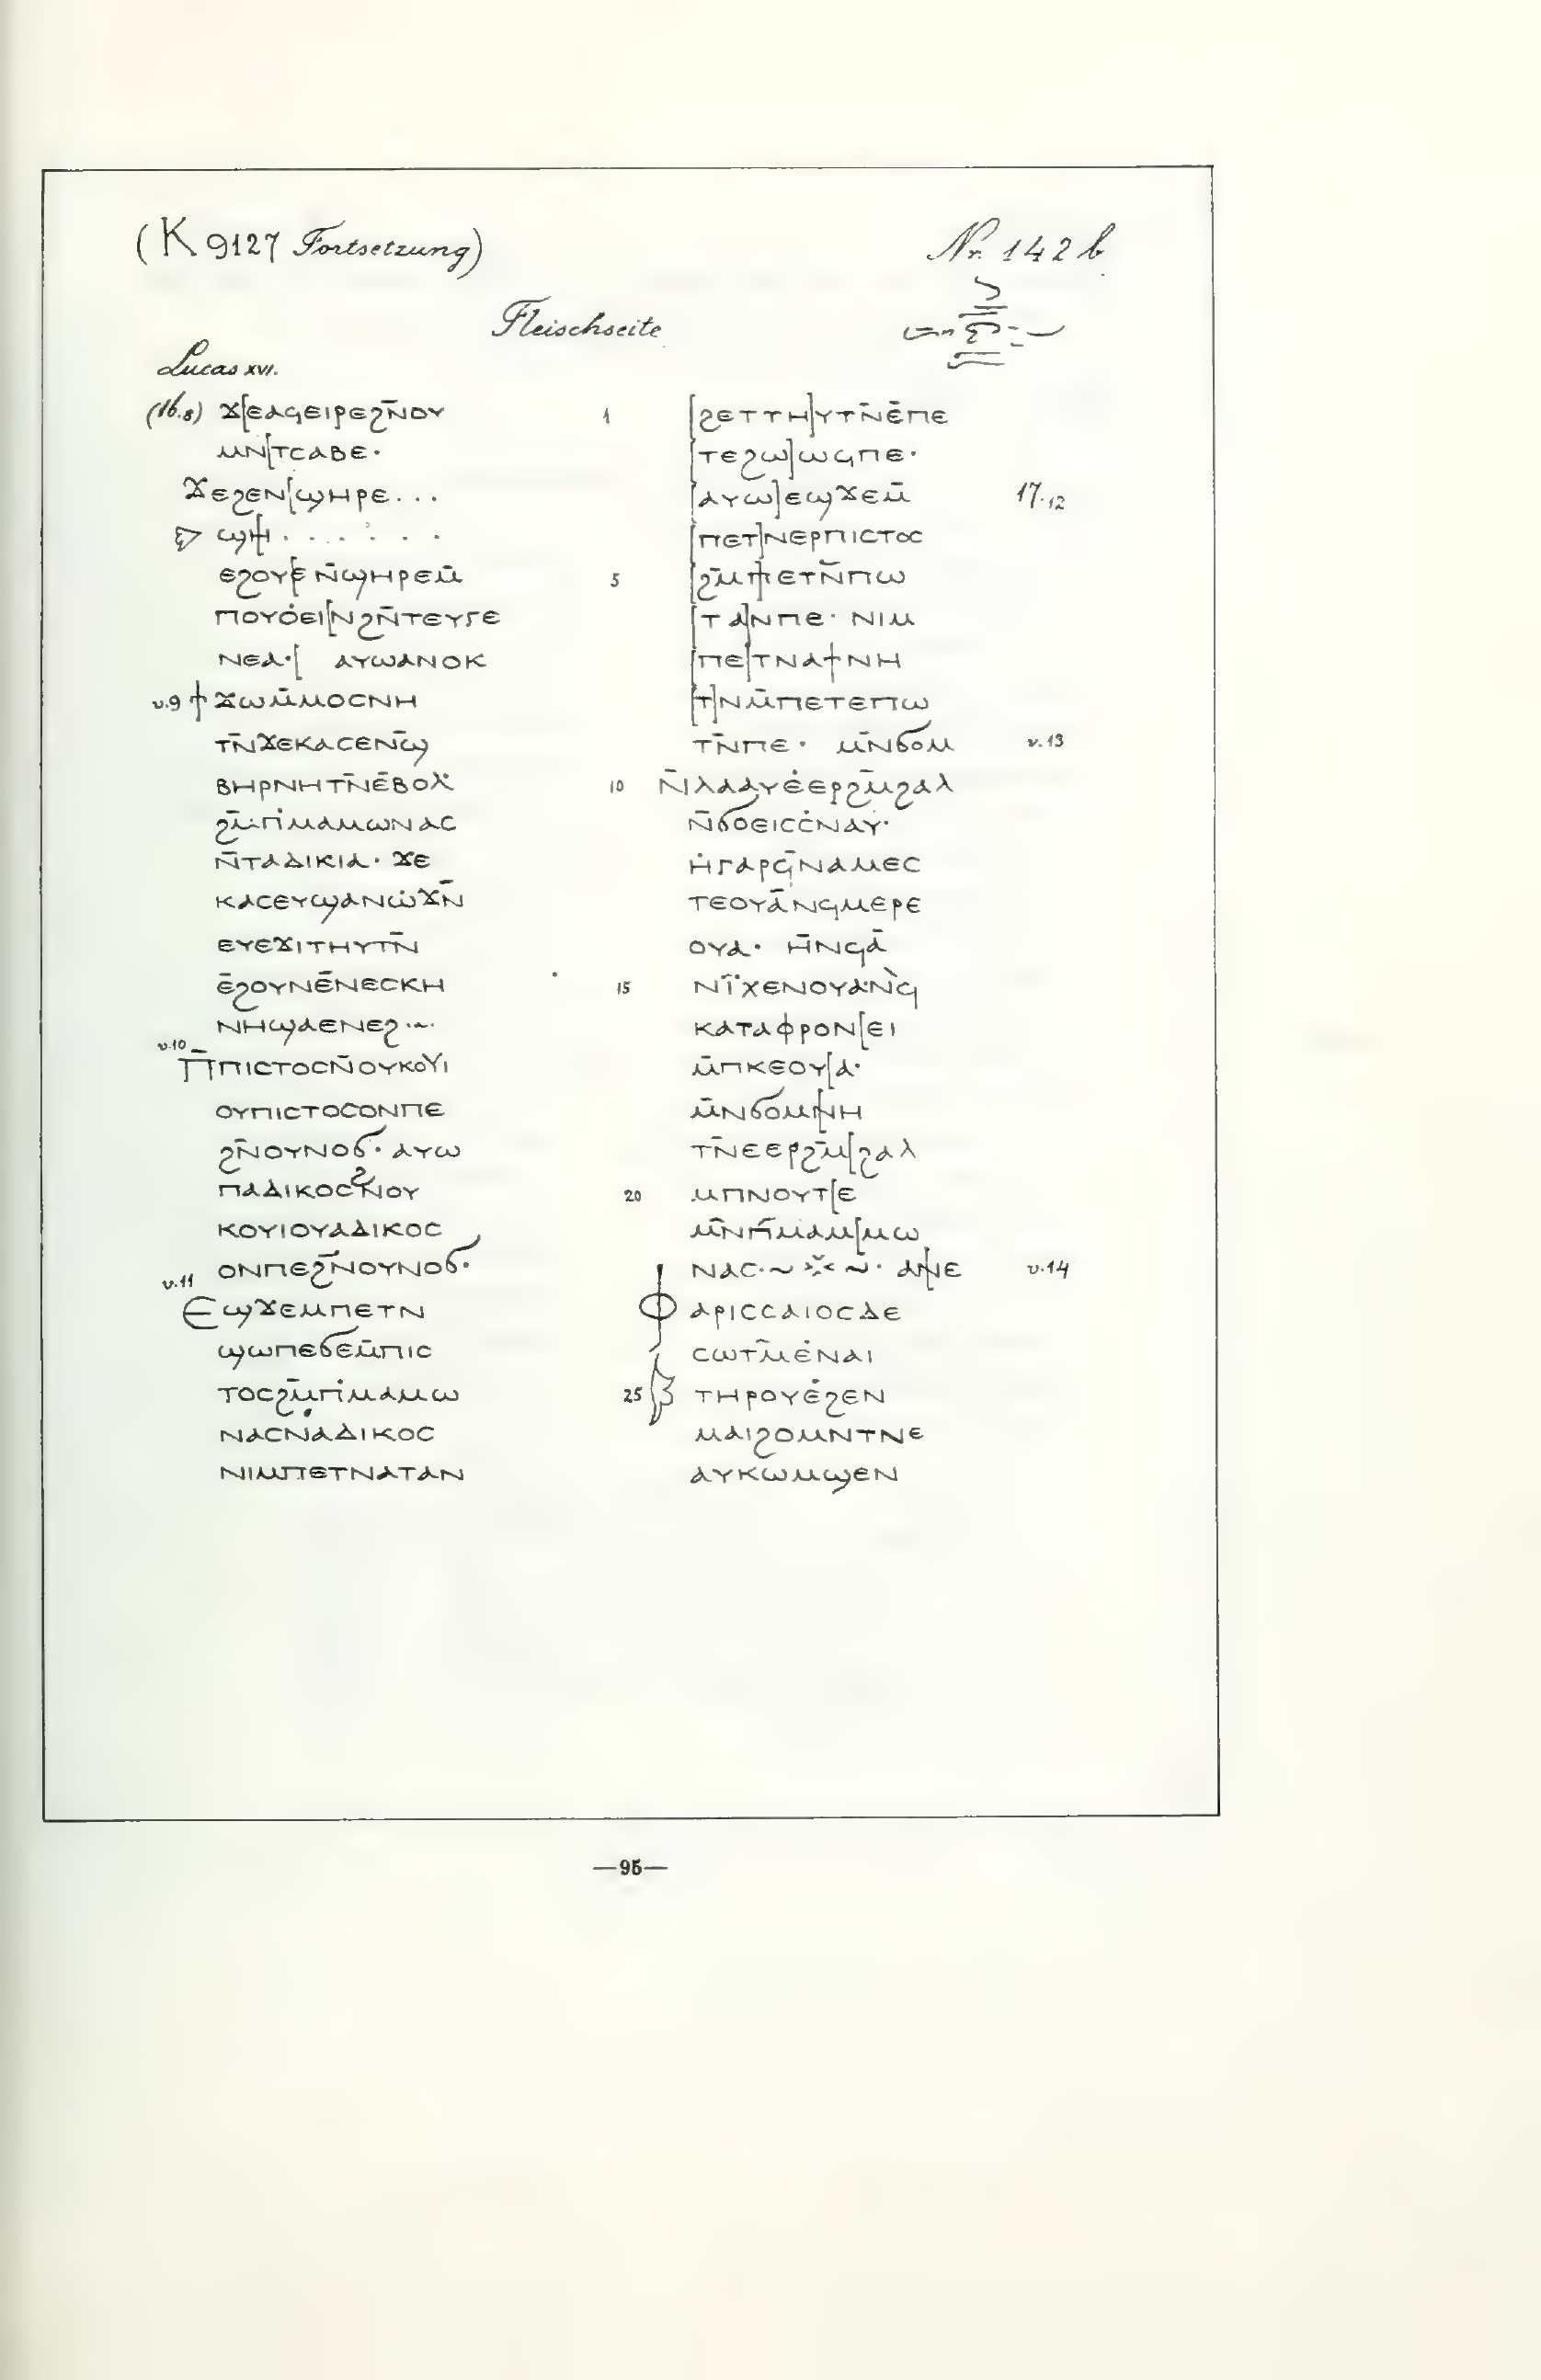 (K 9127 Fortsetzung)
Nr. 142 b
Fleischseite
Lucas XVI.
(16.8) ϫ[ⲉⲁϥⲉⲓⲣⲉϩⲛ̄ⲟⲩ
ⲙⲛ[ⲧⲥⲁⲃⲉ·
ϫⲉϩⲉⲛ[ϣⲏⲣⲉ...
ⲉϩⲟⲩ[ⲉ ⲛ̄ϣⲏⲣⲉⲙ̄
ⲡⲟⲩⲟ̇ⲉⲓ[ⲛϩⲛ̄ⲧⲉⲩⲅⲉ
ⲛⲉⲁ·[ ⲁⲩⲱⲁⲛⲟⲕ
v.9 ϯϫⲱⲙ̄ⲙⲟⲥⲛⲏ
ⲧⲛ̄ϫⲉⲕⲁⲥⲉⲛϣ̄
ⲃⲏⲣⲛⲏⲧⲛ̄ⲉ̄ⲃⲟⲗ
ϩⲙ̄ⲡⲙⲁⲙⲱⲛⲁⲥ
ⲛ̄ⲧⲁⲇⲓⲕⲓⲁ· ϫⲉ
ⲕⲁⲥⲉⲩϣⲁⲛⲱ̇ϫⲛ̄
ⲉⲩⲉϫⲓⲧⲏⲩⲧⲛ̄
ⲉ̄ϩⲟⲩⲛⲉ̄ⲛⲉⲥⲕⲏ
ⲛⲏϣⲁⲉⲛⲉϩ·~·
v.10 ⲡ̄ⲡⲓⲥⲧⲟⲥⲛ̄ⲟⲩⲕⲟⲩⲓ
ⲟⲩⲡⲓⲥⲧⲟⲥⲟⲛⲡⲉ
ϩⲛ̄ⲟⲩⲛⲟϭ· ⲁⲩⲱ
ⲡⲁⲇⲓⲕⲟⲥϩⲛⲟⲩ
ⲕⲟⲩⲓⲟⲩⲁⲇⲓⲕⲟⲥ
ⲟⲛⲡⲉϩⲛ̄ⲟⲩⲛⲟϭ·
v.11 ⲉϣϫⲉⲙⲡⲉⲧⲛ
ϣⲱⲡⲉϭⲉⲙ̄ⲡⲓⲥ
ⲧⲟⲥϩⲙ̄ⲡⲙⲁⲙⲱ
ⲛⲁⲥⲛⲁⲇⲓⲕⲟⲥ
ⲛⲓⲙⲡⲉⲧⲛⲁⲧⲁⲛ
1 [ϩⲉⲧⲧⲏ]ⲩⲧⲛ̄ⲉ̄ⲡⲉ
[ⲧⲉϩⲱ]ⲱϥⲡⲉ·
[ⲁⲩⲱ]ⲉϣϫⲉⲙ̄ 17.12
[ⲡⲉⲧ]ⲛⲉⲣⲡⲓⲥⲧⲟⲥ
5 [ϩⲙ̄ⲡ]ⲉⲧⲛ̄ⲡⲱ
[ⲧⲁ]ⲛⲡⲉ· ⲛⲓⲙ
[ⲡⲉ]ⲧⲛⲁϯⲛⲏ
[ⲧ]ⲛⲙ̄ⲡⲉⲧⲉⲡⲱ
ⲧⲛ̄ⲡⲉ· ⲙ̄ⲛϭⲟⲙ v.13
10 ⲛ̄ⲗⲁⲁⲩⲉ̇ⲉⲣϩⲙ̄ϩⲁⲗ
ⲛ̄ϭⲟⲉⲓⲥⲥ̇ⲛⲁⲩ·
ⲏ̇ⲅⲁⲣϥ̄ⲛⲁⲙⲉⲥ
ⲧⲉⲟⲩⲁ̄ⲛϥⲙⲉⲣⲉ
ⲟⲩⲁ· ⲏ̄ⲛϥⲁ̄
15 ⲛⲓ̈ⲭⲉⲛⲟⲩⲁⲛ̀ϥ
ⲕⲁⲧⲁⲫⲣⲟⲛ[ⲉⲓ
ⲙ̄ⲡⲕⲉⲟⲩ[ⲁ·
ⲙ̄ⲛϭⲟⲙ[ⲙⲛⲏ
ⲧⲛ̄ⲉⲉⲣϩⲙ̄[ϩⲁⲗ
20 ⲙⲡⲛⲟⲩⲧ[ⲉ
ⲙ̄ⲛⲡⲙⲁⲙ[ⲙⲱ
ⲛⲁⲥ·~ ※ ~· ⲁⲛ[ⲉ v.14
ⲫ ⲁⲣⲓⲥⲥⲁⲓⲟⲥⲇⲉ
ⲥⲱⲧⲙ̄ⲉ̇ⲛⲁⲓ
25 ⲧⲏⲣⲟⲩⲉ̇ϩⲉⲛ
ⲙⲁⲓϩⲟⲙⲛⲧⲛⲉ
ⲁⲩⲕⲱⲙϣⲉⲛ
—95—